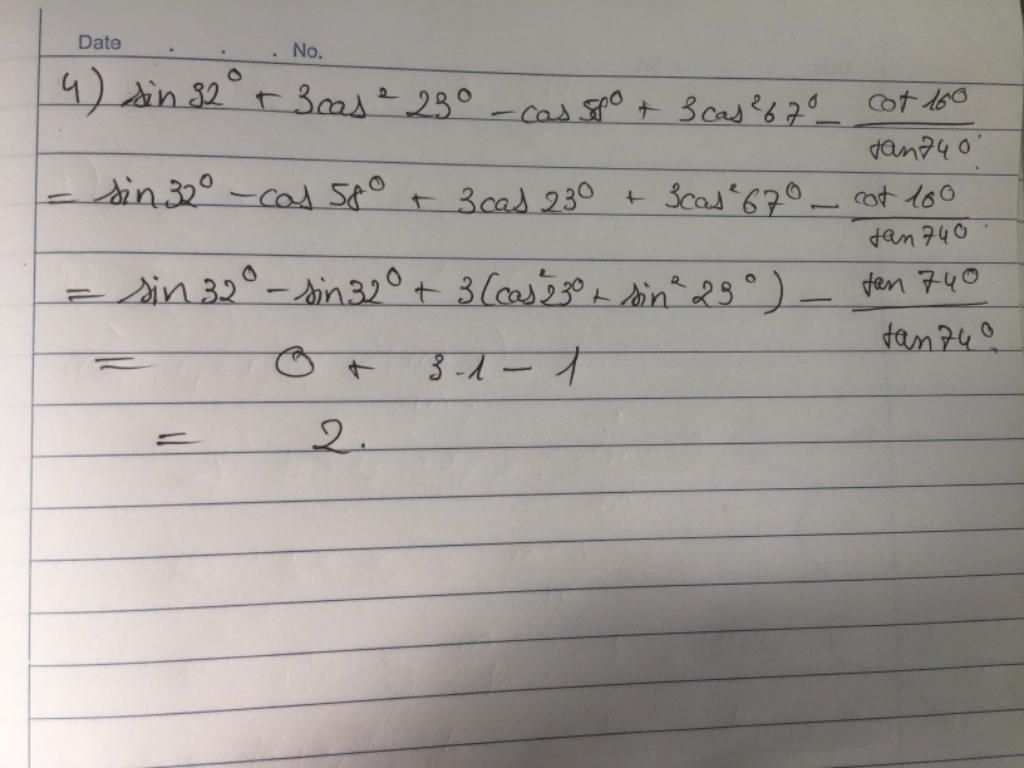 Date . . . No.
4) sin 32° + 3cos² 23° - cos 58° + 3cos² 67° - cot 16° / tan 74°
= sin 32° - cos 58° + 3cos 23° + 3cos² 67° - cot 16° / tan 74°
= sin 32° - sin 32° + 3(cos² 23° + sin² 23°) - tan 74° / tan 74°
= 0 + 3.1 - 1
= 2.